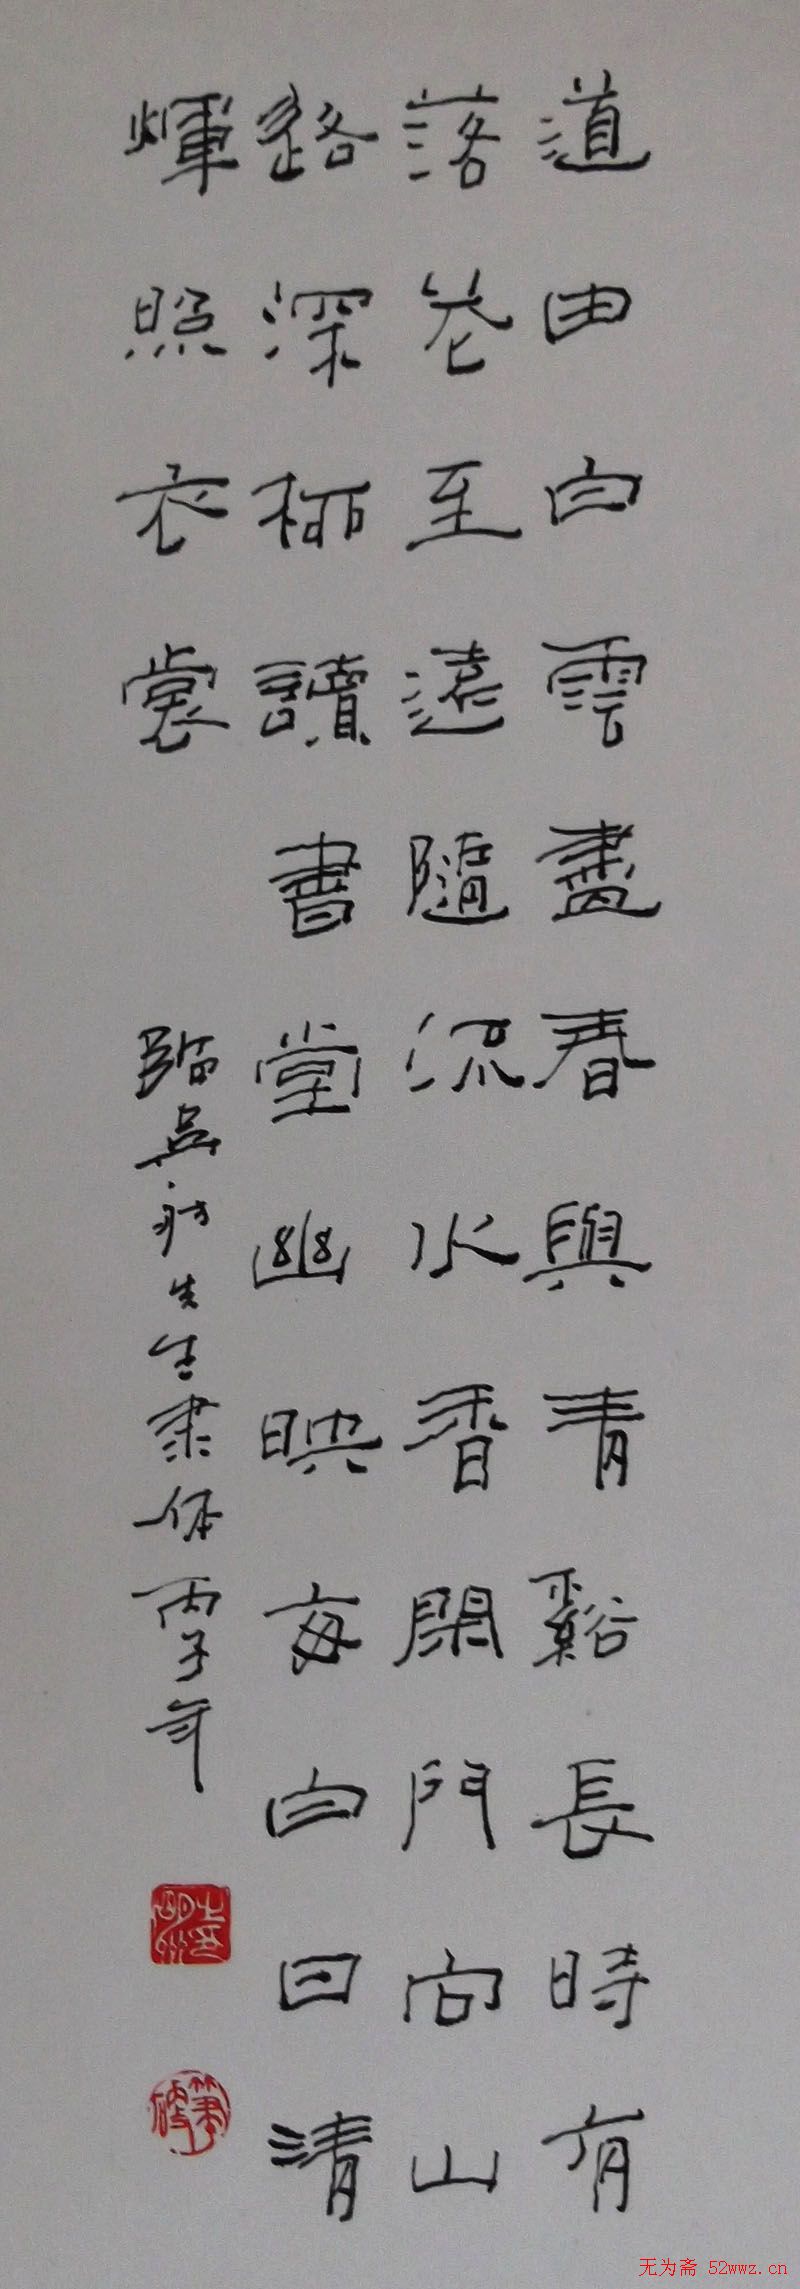 道由白雲盡春與青谿長時有
落花至遠隨流水香閑門向山
路深柳讀書堂幽映每白日清
輝照衣裳
臨吳 先生隶体丙子年
无为斋 52wwz.cn